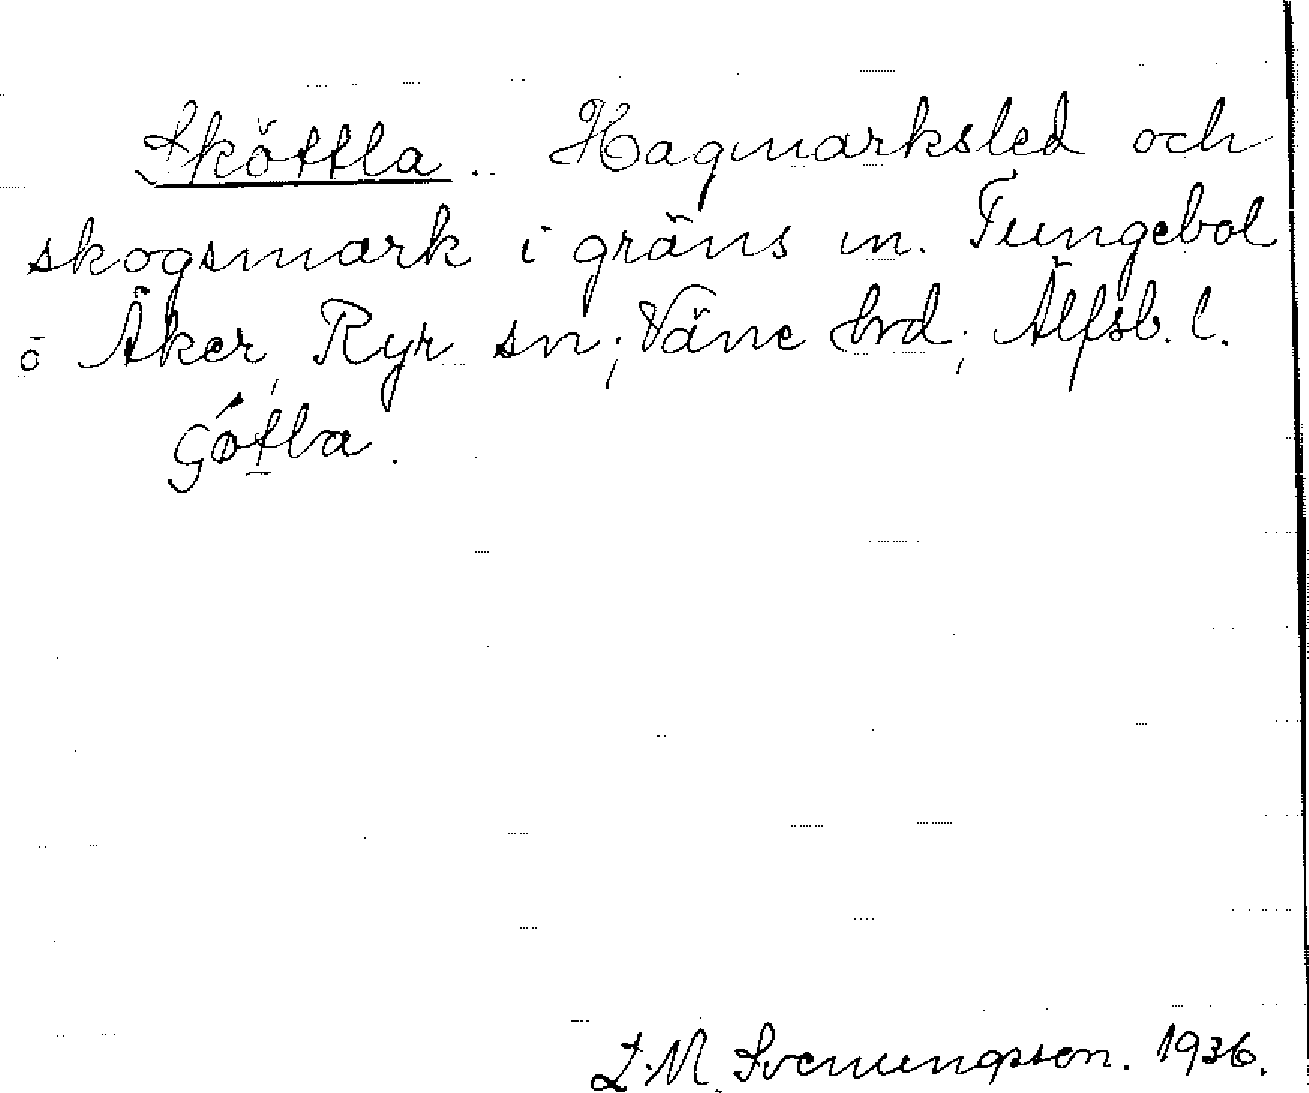 Sköttla. Hagmarksled och
skogsmark i gräns m. Tungebol
o Åker, Ryr sn; Väne hrd; Älfsb. l.
L.M. Svenungsson. 1936.